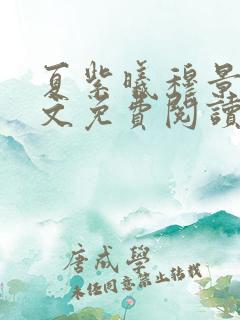 夏紫曦穆景
文免費閱讀
唐成學
未经同意禁止转载